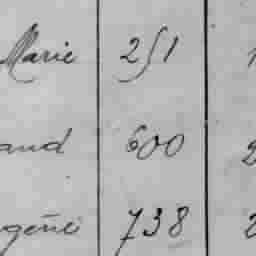 Marie 251 1
and 600 2
gène 738 2